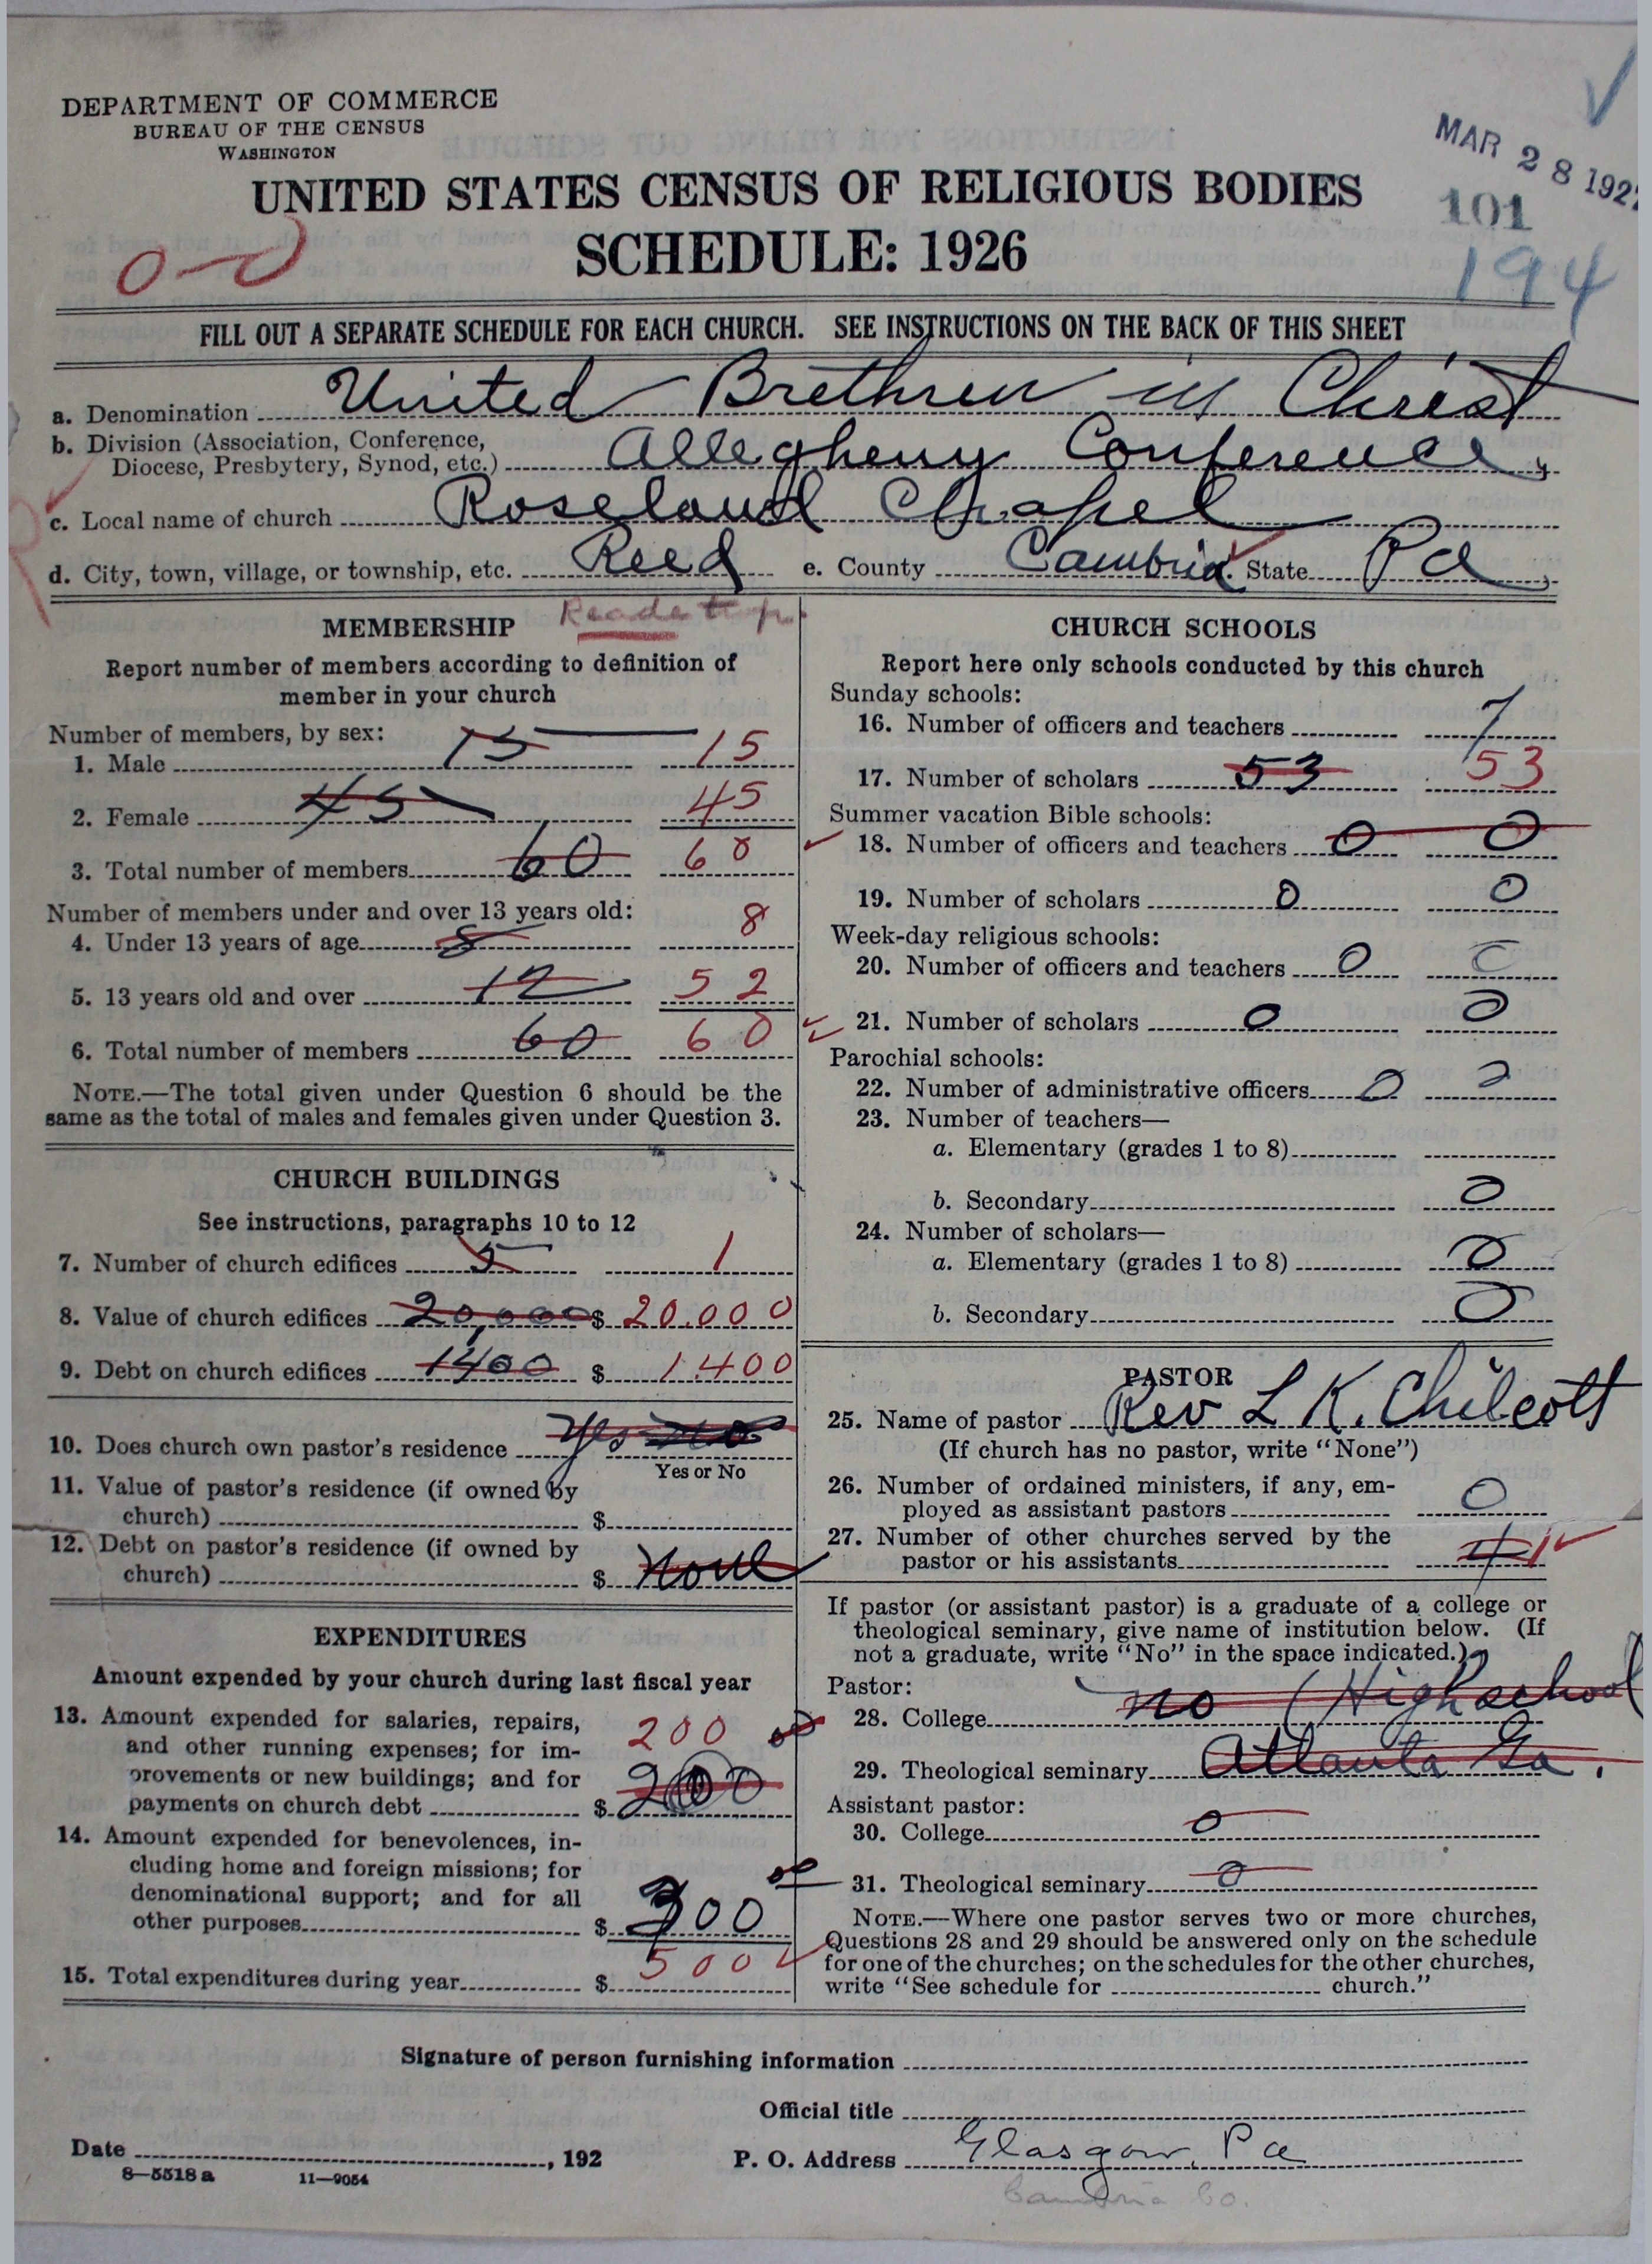 DEPARTMENT OF COMMERCE
BUREAU OF THE CENSUS
WASHINGTON
MAR 28 192
UNITED STATES CENSUS OF RELIGIOUS BODIES
101
SCHEDULE: 1926
194
FILL OUT A SEPARATE SCHEDULE FOR EACH CHURCH. SEE INSTRUCTIONS ON THE BACK OF THIS SHEET
a. Denomination United Brethren in Christ
b. Division (Association, Conference,
Diocese, Presbytery, Synod, etc.) Allegheny Conference,
c. Local name of church Roseland Chapel
d. City, town, village, or township, etc. Reed e. County Cambria. State Pa
Reade twp.
MEMBERSHIP
Report number of members according to definition of
member in your church
Number of members, by sex:
1. Male 15 15
2. Female 45 45
3. Total number of members 60 60
Number of members under and over 13 years old:
4. Under 13 years of age 8 8
5. 13 years old and over 12 52
6. Total number of members 60 60
NOTE.—The total given under Question 6 should be the
same as the total of males and females given under Question 3.
CHURCH BUILDINGS
See instructions, paragraphs 10 to 12
7. Number of church edifices 5 1
8. Value of church edifices 20,000 $ 20.000
9. Debt on church edifices 1400 $ 1.400
10. Does church own pastor's residence Yes no
Yes or No
11. Value of pastor's residence (if owned by
church) $
12. Debt on pastor's residence (if owned by
church) $ None
EXPENDITURES
Amount expended by your church during last fiscal year
13. Amount expended for salaries, repairs,
and other running expenses; for im-
provements or new buildings; and for
payments on church debt $ 200 00
200
14. Amount expended for benevolences, in-
cluding home and foreign missions; for
denominational support; and for all
other purposes $ 300 00
15. Total expenditures during year $ 500
CHURCH SCHOOLS
Report here only schools conducted by this church
Sunday schools:
16. Number of officers and teachers 7
17. Number of scholars 53 53
Summer vacation Bible schools:
18. Number of officers and teachers 0 0
19. Number of scholars 0 0
Week-day religious schools:
20. Number of officers and teachers 0 0
21. Number of scholars 0 0
Parochial schools:
22. Number of administrative officers 0
23. Number of teachers—
a. Elementary (grades 1 to 8)
b. Secondary 0
24. Number of scholars—
a. Elementary (grades 1 to 8) 0
b. Secondary 0
PASTOR
25. Name of pastor Rev L K. Chilcott
(If church has no pastor, write "None")
26. Number of ordained ministers, if any, em-
ployed as assistant pastors 0
27. Number of other churches served by the
pastor or his assistants 4 1
If pastor (or assistant pastor) is a graduate of a college or
theological seminary, give name of institution below. (If
not a graduate, write "No" in the space indicated.)
Pastor:
28. College no (High school
29. Theological seminary Atlanta Ga.
Assistant pastor:
30. College 0
31. Theological seminary 0
NOTE.—Where one pastor serves two or more churches,
Questions 28 and 29 should be answered only on the schedule
for one of the churches; on the schedules for the other churches,
write "See schedule for church."
Signature of person furnishing information
Official title
Date , 192 P. O. Address Glasgow, Pa
8—5518 a 11—9054
Cambria Co.